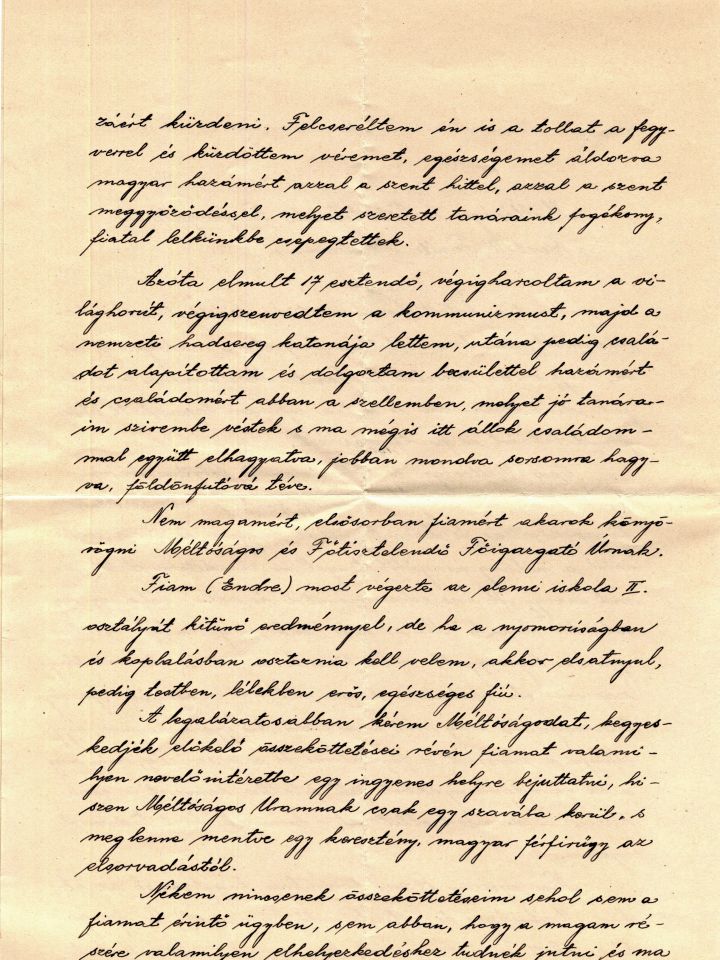 záért küzdeni. Felcseréltem én is a tollat a fegy-
verrel és küzdöttem véremet, egészségemet áldozva
magyar hazámért azzal a szent hittel, azzal a szent
meggyőződéssel, melyet szeretett tanáraink fogékony,
fiatal lelkünkbe csepegtettek.
Azóta elmult 17 esztendő, végigharcoltam a vi-
lághorút, végigszenvedtem a kommunizmust, majd a
nemzeti hadsereg katonája lettem, utána pedig csalá-
dot alapitottam és dolgoztam becsülettel hazámért
és családomért abban a szellemben, melyet jó tanára-
im szivembe véstek s ma mégis itt állok családom-
mal együtt elhagyatva, jobban mondva sorsomra hagy-
va, földönfutóvá téve.
Nem magamért, elsősorban fiamért akarok könyö-
rögni Méltóságos és Főtisztelendő Főigazgató Úrnak.
Fiam (Endre) most végezte az elemi iskola II.
osztályát kitünő eredménnyel, de ha a nyomorúságban
és koplalásban osztoznia kell velem, akkor elsatnyul,
pedig testben, lélekben erős, egészséges fiú.
A legalázatosabban kérem Méltóságodat, kegyes-
kedjék előkelő összeköttetései révén fiamat valami-
lyen nevelőintézetbe egy ingyenes helyre bejuttatni, hi-
szen Méltóságos Uramnak csak egy szavába kerül, s
meglenne mentve egy keresztény, magyar férfirügy az
elsorvadástól.
Nékem nincsenek összeköttetéseim sehol sem a
fiamat érintő ügyben, sem abban, hogy a magam ré-
szére valamilyen elhelyezkedéshez tudnék jutni és ma